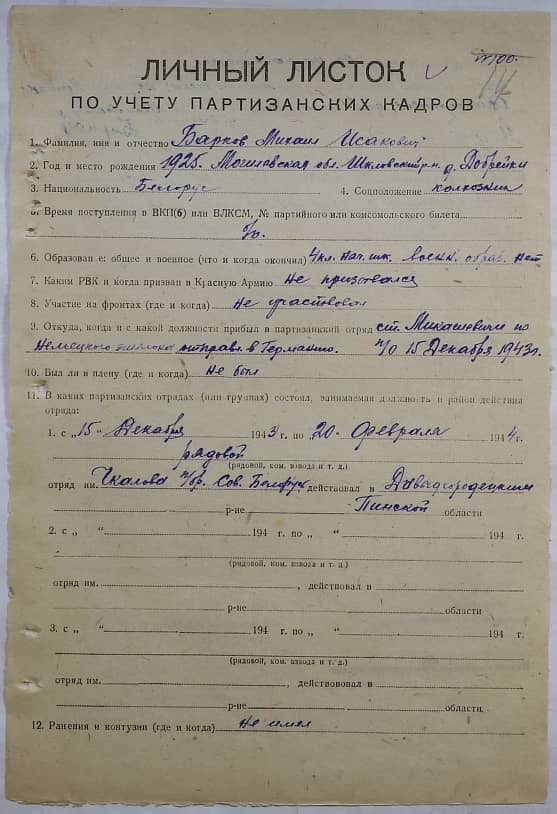 ЛИЧНЫЙ ЛИСТОК
ПО УЧЕТУ ПАРТИЗАНСКИХ КАДРОВ
1. Фамилия, имя и отчество Барков Михаил Исакович
2. Год и место рождения 1925. Могилевская обл. Шкловский р-н. д. Добрейки
3. Национальность Белорус 4. Соцположение колхозник
5. Время поступления в ВКП(б) или ВЛКСМ, № партийного или комсомольского билета
б/п.
6. Образован е: общее и военное (что и когда окончил) 4 кл. нач. шк. Воен. образ. нет
7. Каким РВК и когда призван в Красную Армию Не призывался
8. Участие на фронтах (где и когда) Не участвовал
9. Откуда, когда и с какой должности прибыл в партизанкий отряд ст. Микашевичи из
Немецкого эшелона отправл. в Германию. п/о 15 Декабря 1943г.
10. Был ли в плену (где и когда) Не был
11. В каких партизанских отрядах (или группах) состоял, занимаемая должность и район действия
отряда:
1. с „15" Декабря 1943 г. по 20 Февраля 1944 г.
рядовой
(рядовой, ком. взвода и т. д.)
отряд им. Чкалова п/бр. Сов. Белорус, действовал в Давыдгородецким
р-не Пинской области
2. с „ " 194 г. по „ " 194 г.
(рядовой, ком. взвода и т. д.)
отряд им. , действовал в
р-не области
3. с „ " 194 г. по „ " 194 г.
(рядовой, ком. взвода и т. д.)
отряд им. , действововал в
р-не области.
12. Ранения и контузии (где и когда) Не имел